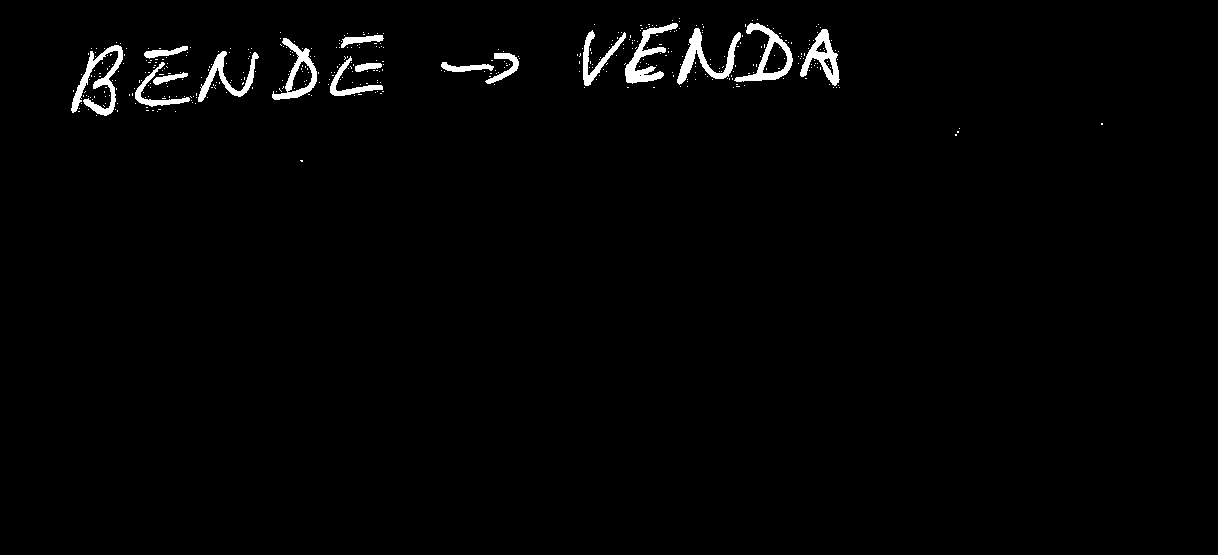 BENDE → VENDA